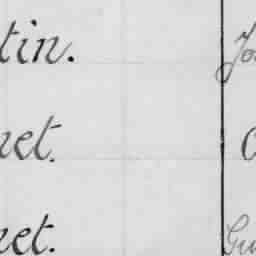 tin. Jo
net. C
net. Gu